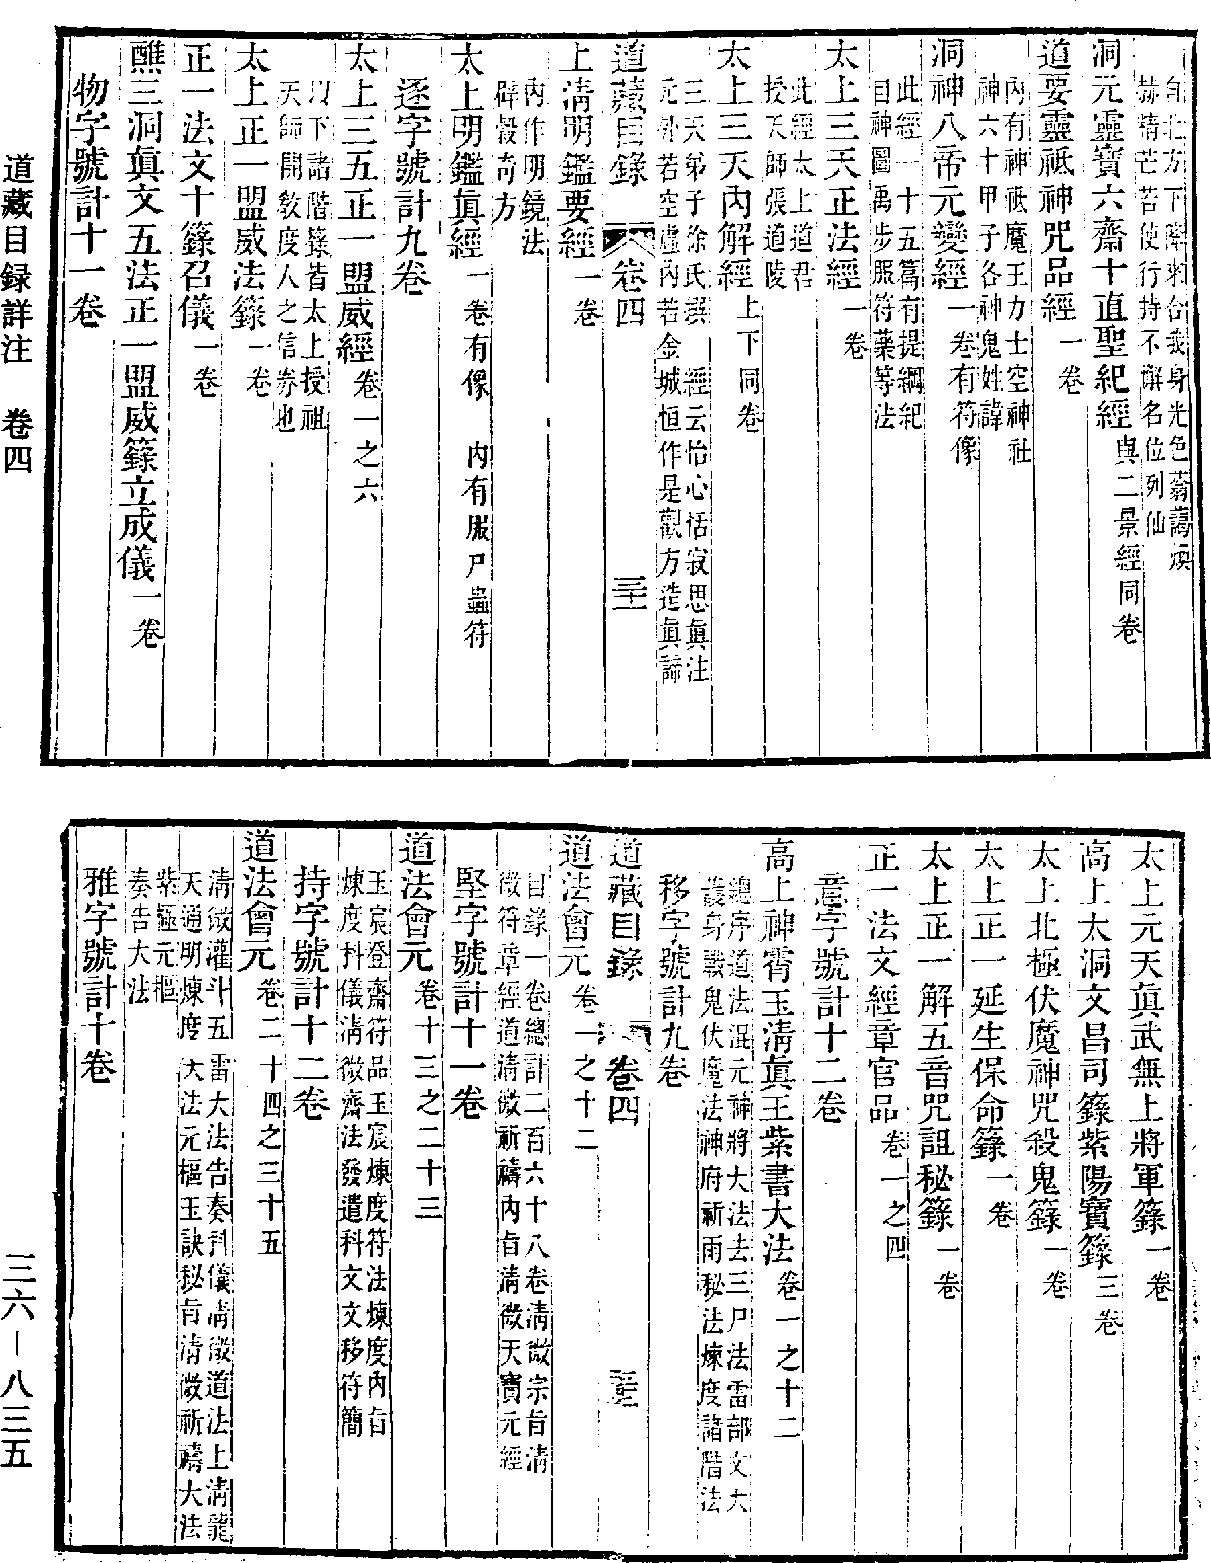 赫精芒若使行持不懈名位列仙
洞元靈寶六齋十直聖紀經與二景經同卷
道要靈祗神咒品經一卷
內有神祗魔王力士空神社
神六十甲子各神鬼姓諱
洞神八帝元變經一卷有符像
此經一十五篇有提綱紀
目神圖禹步服符藥等法
太上三天正法經一卷
此經太上道君
授天師張道陵
太上三天內解經上下同卷
三天弟子徐氏撰 經云怡心恬寂思眞注
元外若空虛內若金城恒作是觀方造眞諦
道藏目錄 卷四 三十二
上淸明鑑要經一卷
內作明鏡法
辟穀奇方
太上明鑑眞經一卷有像 內有服尸蟲符
逐字號計九卷
太上三五正一盟威經卷一之六
以下諸階籙皆太上授祖
天師開敎度人之信券也
太上正一盟威法籙一卷
正一法文十籙召儀一卷
醮三洞眞文五法正一盟威籙立成儀一卷
物字號計十一卷
道藏目録詳注 卷四
太上元天眞武無上將軍籙一卷
高上太洞文昌司籙紫陽寶籙三卷
太上北極伏魔神咒殺鬼籙一卷
太上正一延生保命籙一卷
太上正一解五音咒詛秘籙一卷
正一法文經章官品卷一之四
意字號計十二卷
高上神霄玉淸眞王紫書大法卷一之十二
總序道法混元神將大法去三尸法雷部文大
護身戰鬼伏魔法神府祈雨秘法煉度諸階法
移字號計九卷
道藏目錄 卷四 三十三
道法會元卷一之十二
目錄一卷總計二百六十八卷淸微宗旨淸
微符章經道淸微祈禱內旨淸微天寶元經
堅字號計十一卷
道法會元卷十三之二十三
玉宸登齋符品玉宸煉度符法煉度內旨
煉度科儀淸微齋法發遣科文文移符簡
持字號計十二卷
道法會元卷二十四之三十五
淸微灌斗五雷大法告奏科儀淸微道法上淸龍
天通明煉度大法元樞玉訣秘旨淸微祈禱大法
紫極元樞
奏告大法
雅字號計十卷
三六－八三五